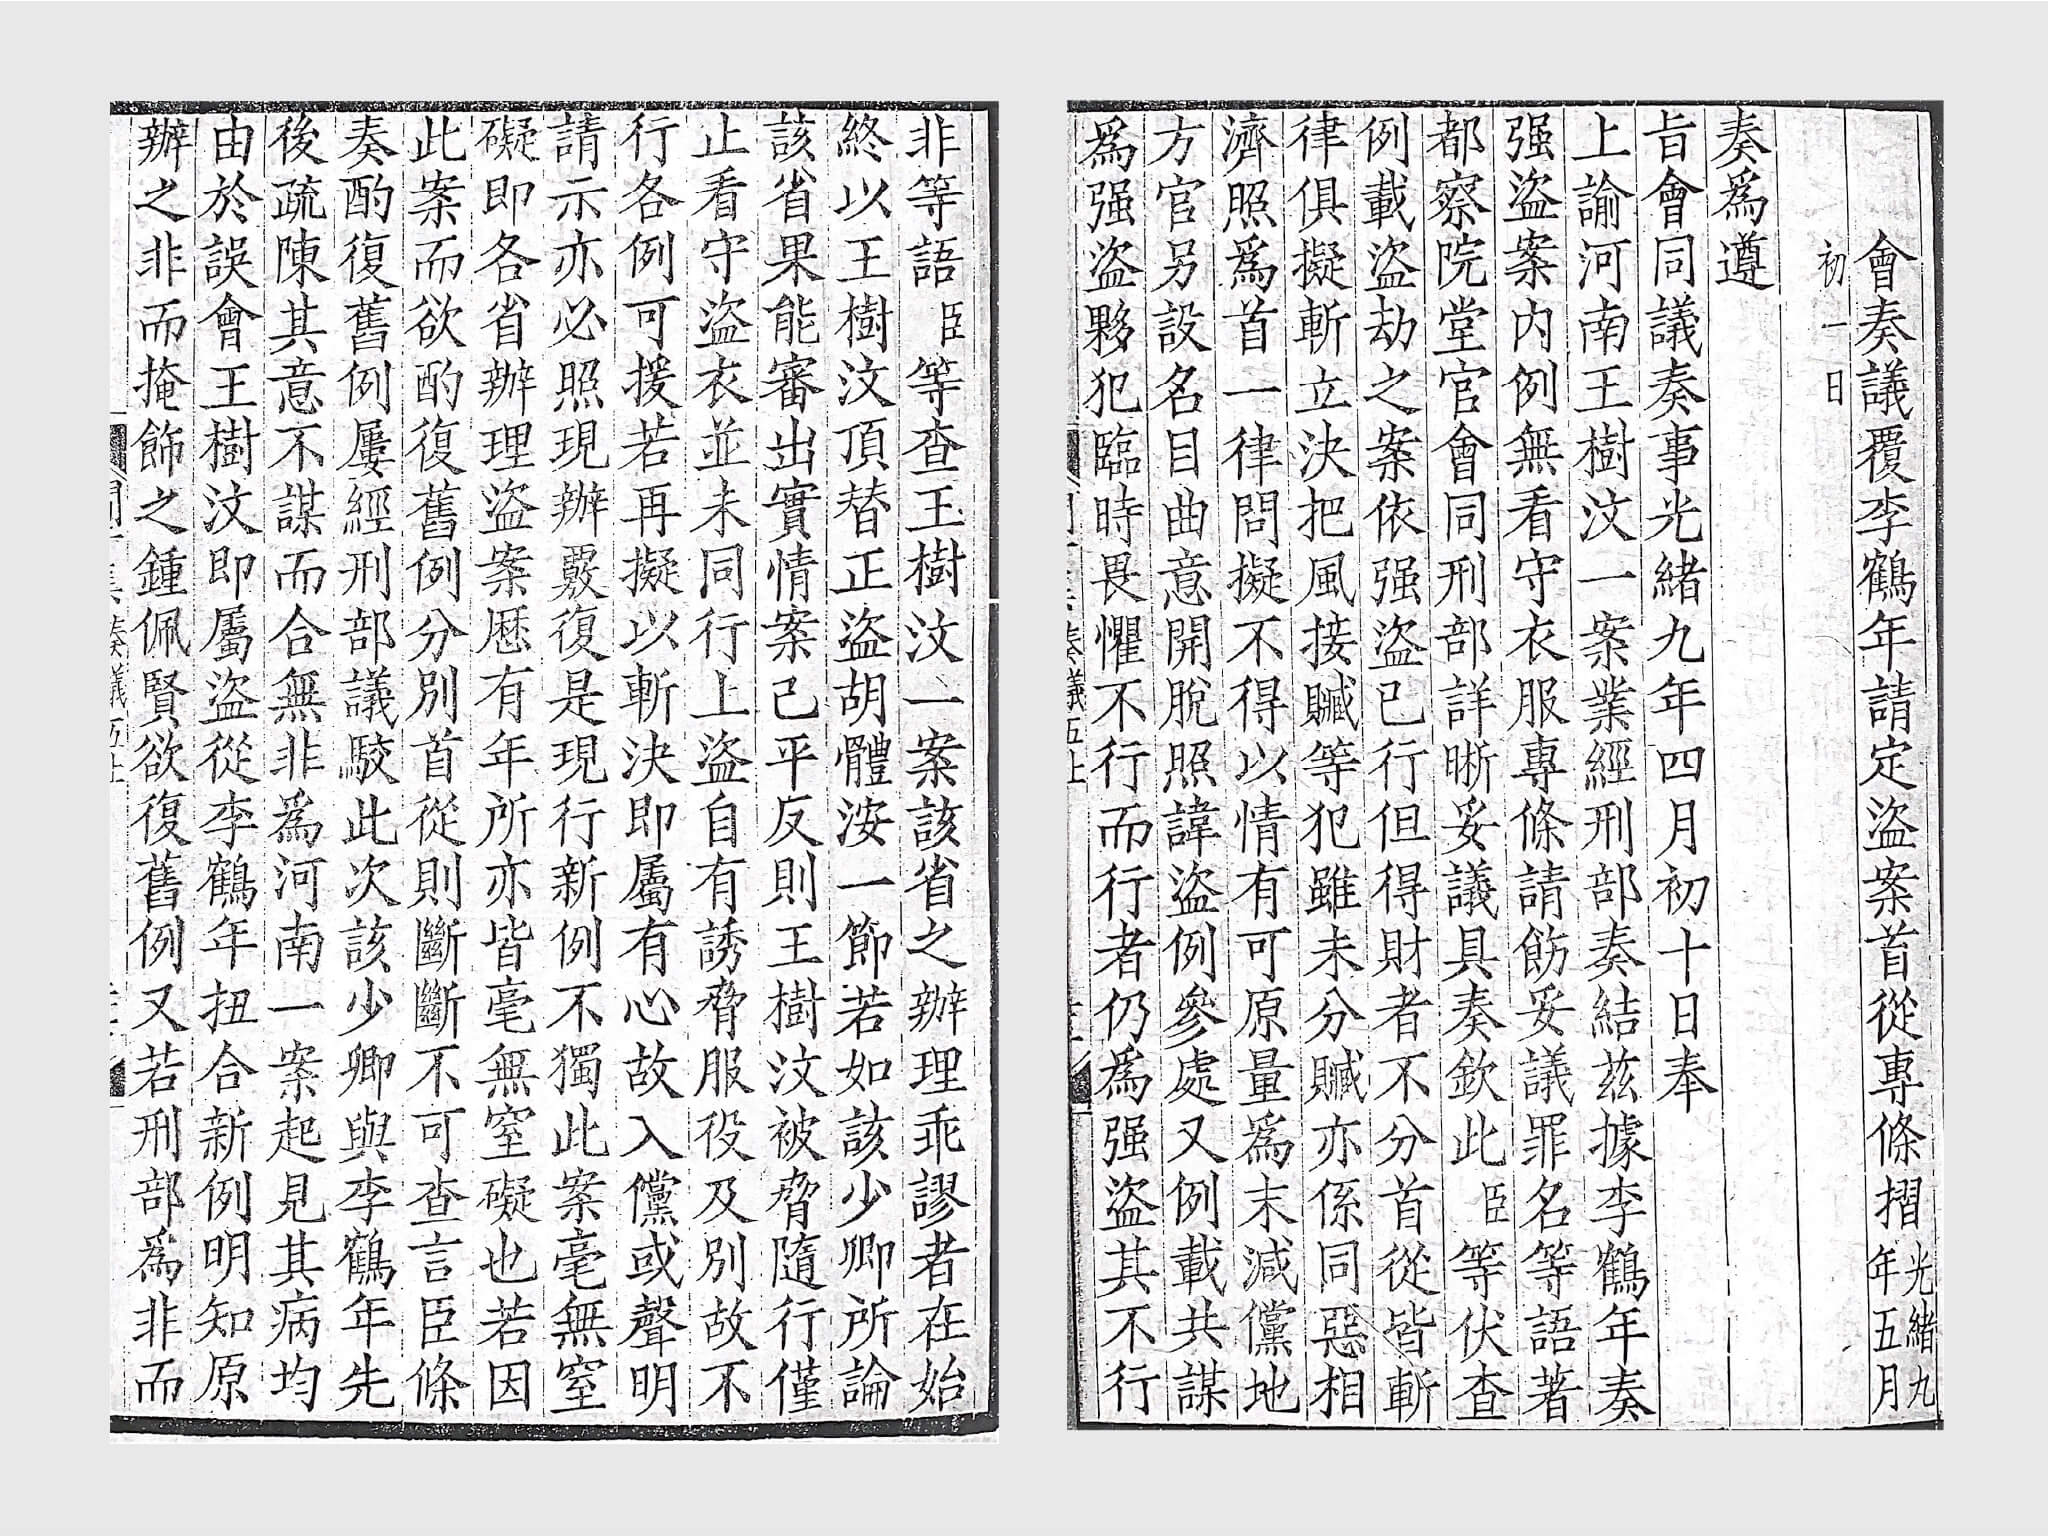 會奏議覆李鶴年請定盜案首從專條摺光緒九年五月
初一日
奏爲遵
旨會同議奏事光緒九年四月初十日奉
上諭河南王樹汶一案業經刑部奏結茲據李鶴年奏
强盜案內例無看守衣服專條請飭妥議罪名等語著
都察院堂官會同刑部詳晰妥議具奏欽此臣等伏查
例載盜劫之案依强盜已行但得財者不分首從皆斬
律俱擬斬立決把風接贓等犯雖未分贓亦係同惡相
濟照爲首一律問擬不得以情有可原量爲末減儻地
方官另設名目曲意開脫照諱盜例參處又例載共謀
爲强盜夥犯臨時畏懼不行而行者仍爲强盜其不行
非等語臣等查王樹汶一案該省之辦理乖謬者在始
終以王樹汶頂替正盜胡體洝一節若如該少卿所論
該省果能審出實情案已平反則王樹汶被脅隨行僅
止看守盜衣並未同行上盜自有誘脅服役及別故不
行各例可援若再擬以斬決即屬有心故入儻或聲明
請示亦必照現辦覈復是現行新例不獨此案毫無窒
礙即各省辦理盜案歷有年所亦皆毫無窒礙也若因
此案而欲酌復舊例分別首從則斷斷不可查言臣條
奏酌復舊例屢經刑部議駮此次該少卿與李鶴年先
後疏陳其意不謀而合無非爲河南一案起見其病均
由於誤會王樹汶即屬盜從李鶴年扭合新例明知原
辦之非而掩飾之鍾佩賢欲復舊例又若刑部爲非而